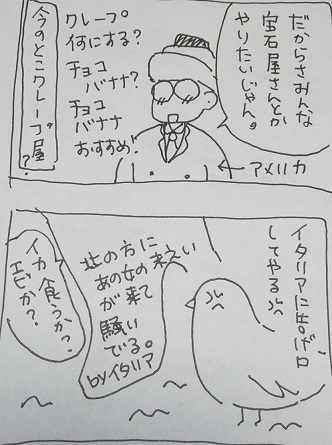 だからさみんな
宝石屋さんとか
やりたいじゃん。
アメリカ
クレープ
何にする?
チョコ
バナナ?
チョコ
バナナ
おすすめ!
今のとこクレープ屋?
イタリアに告げ口
してやる
北の方に
あの女の末えい
が来て
騒い
でる。
byイタリア
イカ食うか?
エビか?